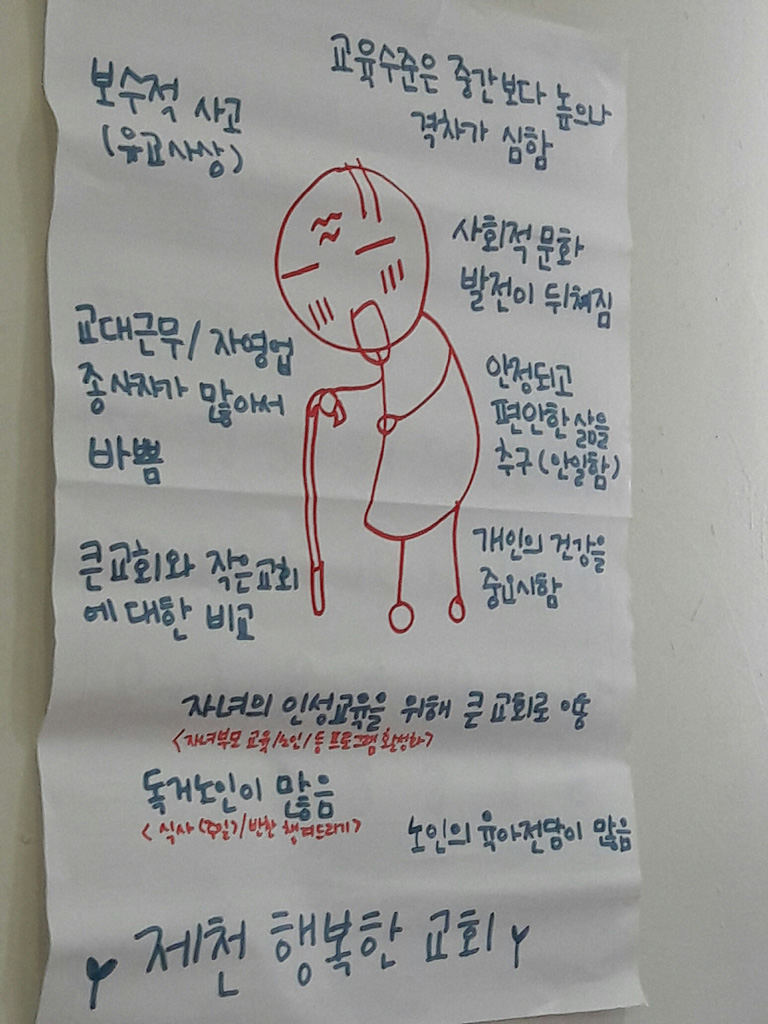 보수적 사고
(유교사상)
교육수준은 중간보다 높으나
격차가 심함
사회적 문화
발전이 뒤쳐짐
교대근무/ 자영업
종사자가 많아서
바쁨
안정되고
편안한 삶을
추구(안일함)
큰교회와 작은교회
에 대한 비교
개인의 건강을
중요시함
자녀의 인성교육을 위해 큰 교회로 이동
<자녀부모 교육/노인/등 프로그램 활성화>
독거노인이 많음
< 식사 (주일)/반찬 챙겨드리기>
노인의 육아전담이 많음
제천 행복한 교회